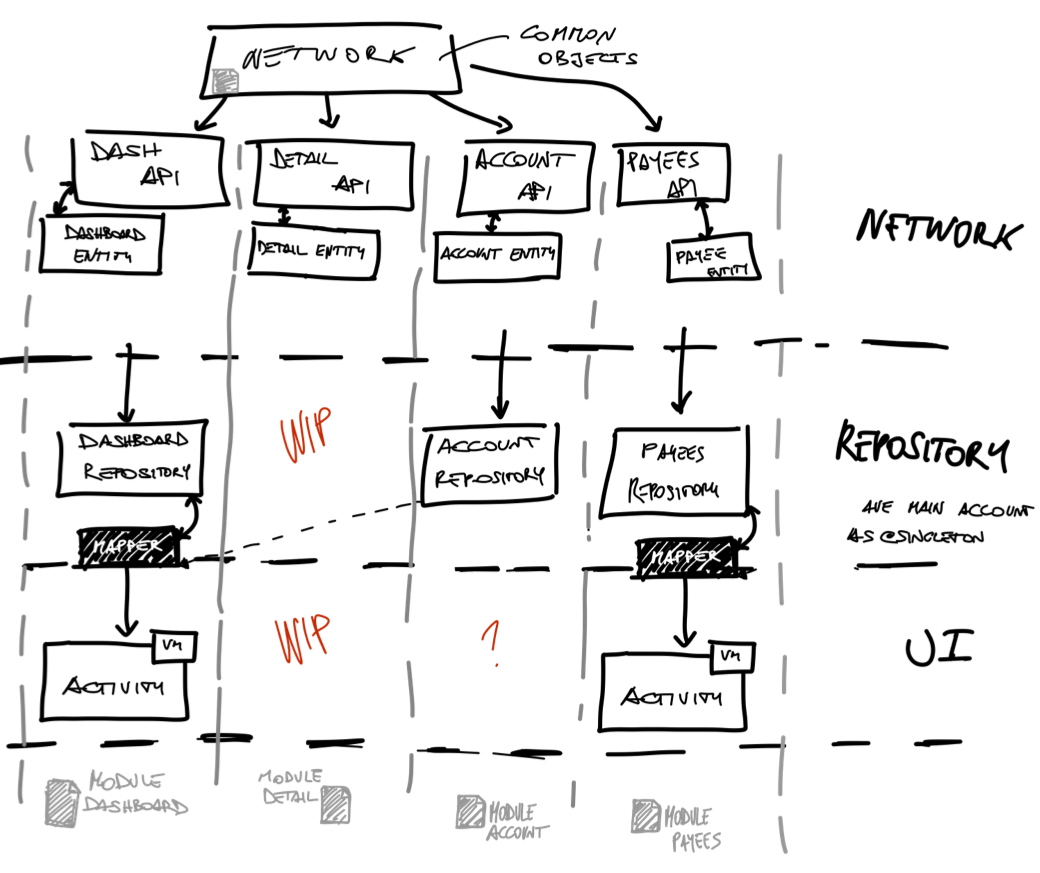 NETWORK
COMMON
OBJECTS
DASH
API
DETAIL
API
ACCOUNT
API
PAYEES
API
DASHBOARD
ENTITY
DETAIL ENTITY
ACCOUNT ENTITY
PAYEE
ENTITY
NETWORK
DASHBOARD
REPOSITORY
WIP
ACCOUNT
REPOSITORY
PAYEES
REPOSITORY
REPOSITORY
MAIN ACCOUNT
AS @SINGLETON
MAPPER
MAPPER
VM
ACTIVITY
WIP
?
VM
ACTIVITY
UI
MODULE
DASHBOARD
MODULE
DETAIL
MODULE
ACCOUNT
MODULE
PAYEES